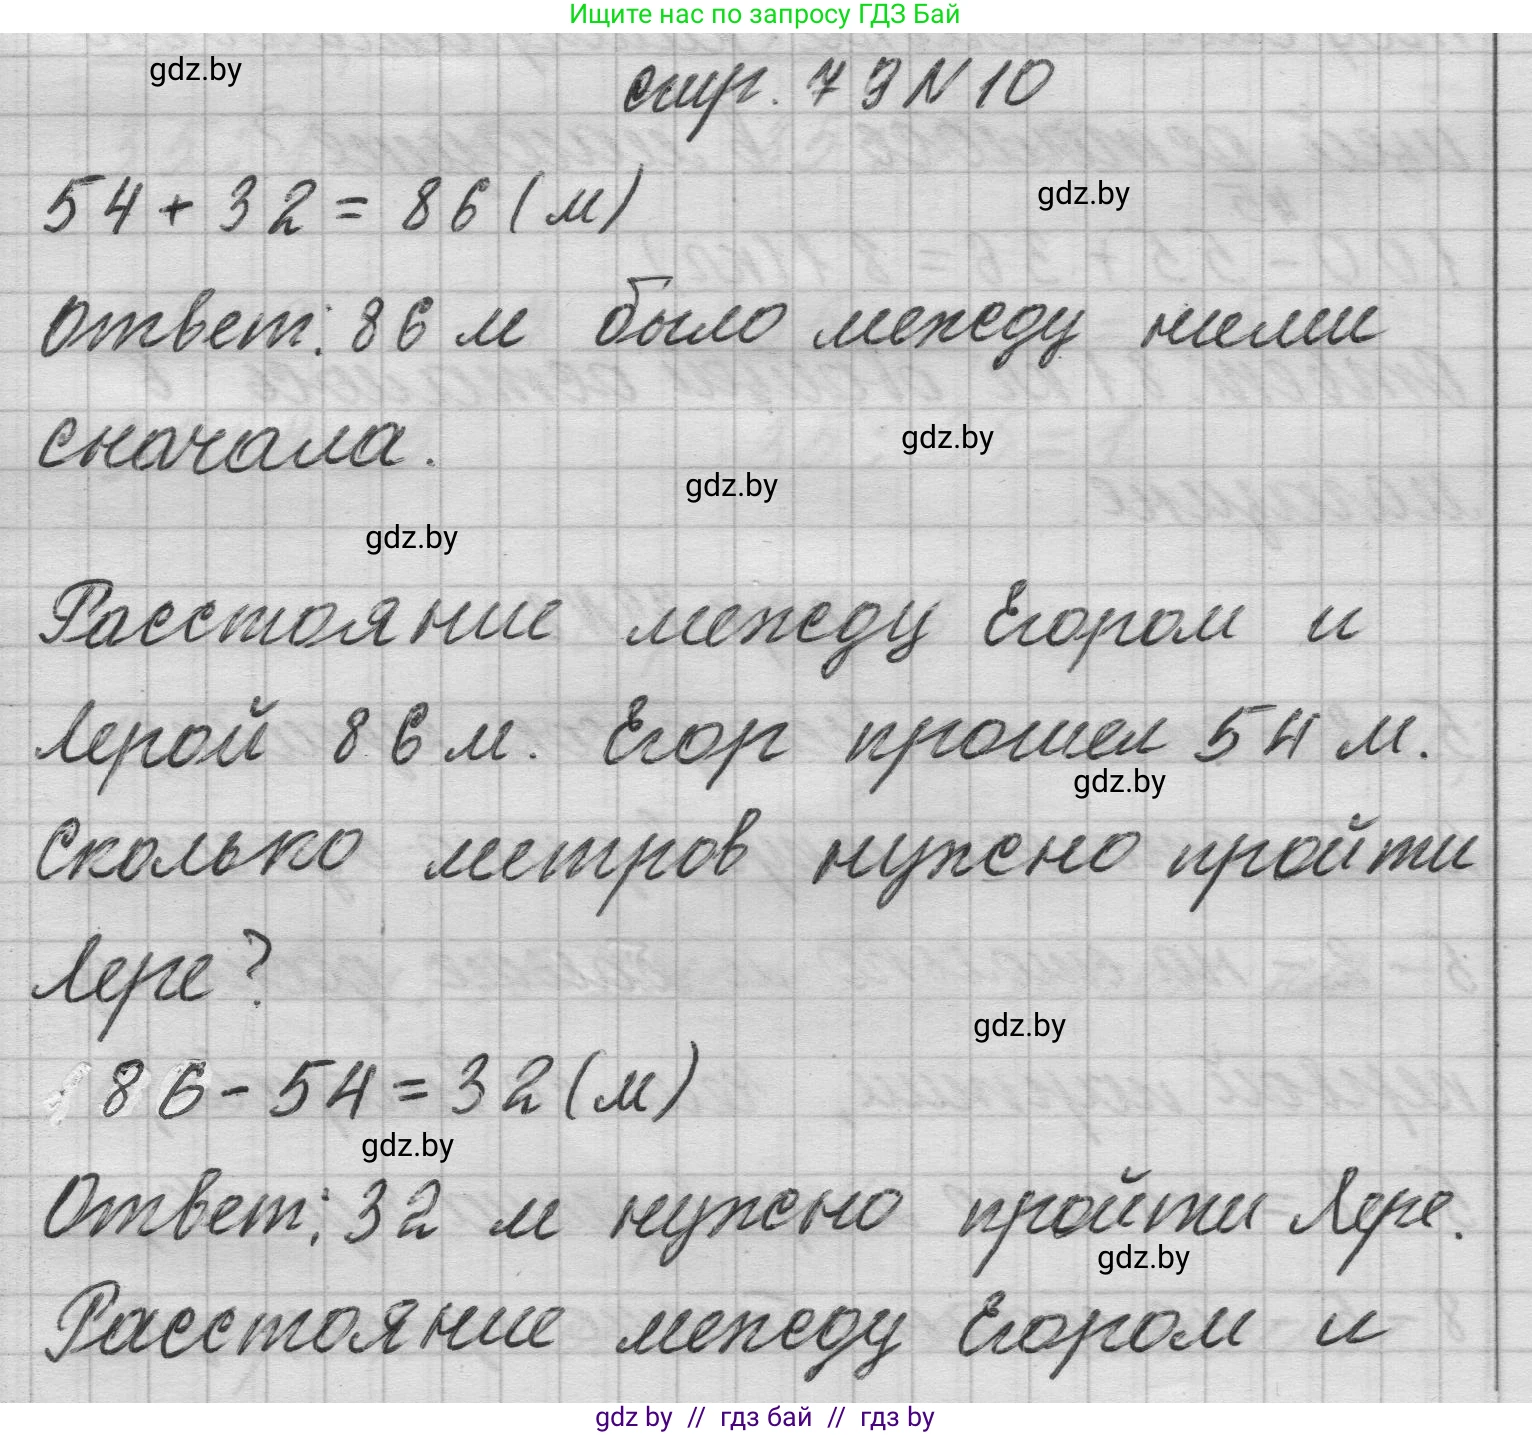 Ищите нас по запросу ГДЗ Бай
gdz.by
стр. 79 N 10
54 + 32 = 86 (м)
gdz.by
Ответ: 86 м было между ними
сначала.
gdz.by
gdz.by
gdz.by
Расстояние между Егором и
Лерой 86 м. Егор прошел 54 м.
gdz.by
Сколько метров нужно пройти
Лере?
gdz.by
86 - 54 = 32 (м)
gdz.by
Ответ: 32 м нужно пройти Лере.
gdz.by
Расстояние между Егором и
gdz by // гдз бай // гдз by